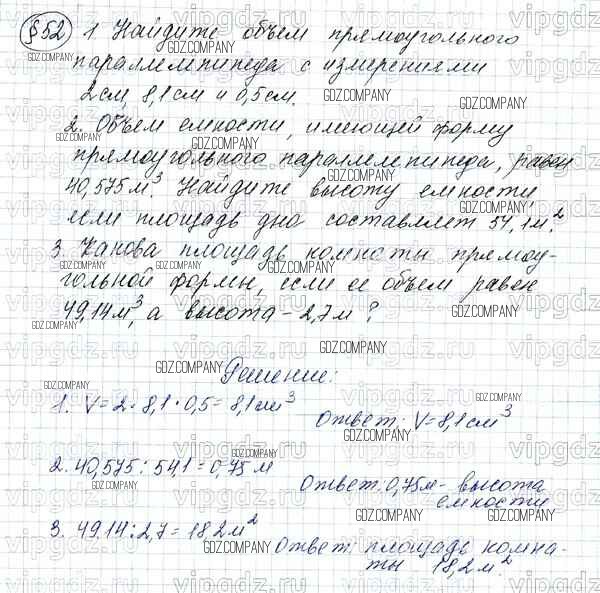 §52 1 Найдите объем прямоугольного
параллелепипеда с измерениями
2см, 8,1см и 0,5см.
2. Объем емкости, имеющей форму
прямоугольного параллелепипеда, равен
40,575м³. Найдите высоту емкости,
если площадь дна составляет 54,1м².
3. Какова площадь комнаты прямоу-
гольной формы, если ее объем равен
49,14м³, а высота - 2,7м?
Решение:
1. V = 2 · 8,1 · 0,5 = 8,1см³
Ответ: V = 8,1см³
2. 40,575 : 54,1 = 0,75 м
Ответ: 0,75м - высота
емкости
3. 49,14 : 2,7 = 18,2м²
Ответ: площадь комна-
ты 18,2м²
GDZ.COMPANY
vipgdz.ru